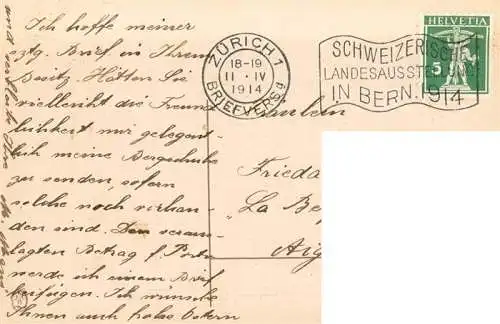 Ich hoffe meiner
eztg. Brief in Ihrem
Besitz. Hätten Sie
vielleicht die Freund-
lichkeit mir gelegent-
lich meine Bergschuhe
zu senden, sofern
solche noch vorhan-
den sind. Den veraus-
lagten Betrag f. Porto
werde ich einem Brief
beifügen. Ich wünsche
Ihnen auch frohe Ostern
und
ZÜRICH 1
18-19
11. IV
1914
BRIEFVERSD
SCHWEIZERISCHE
LANDESAUSSTELLUNG
IN BERN. 1914
HELVETIA
5
Fräulein
Frieda
"La Be
Aig